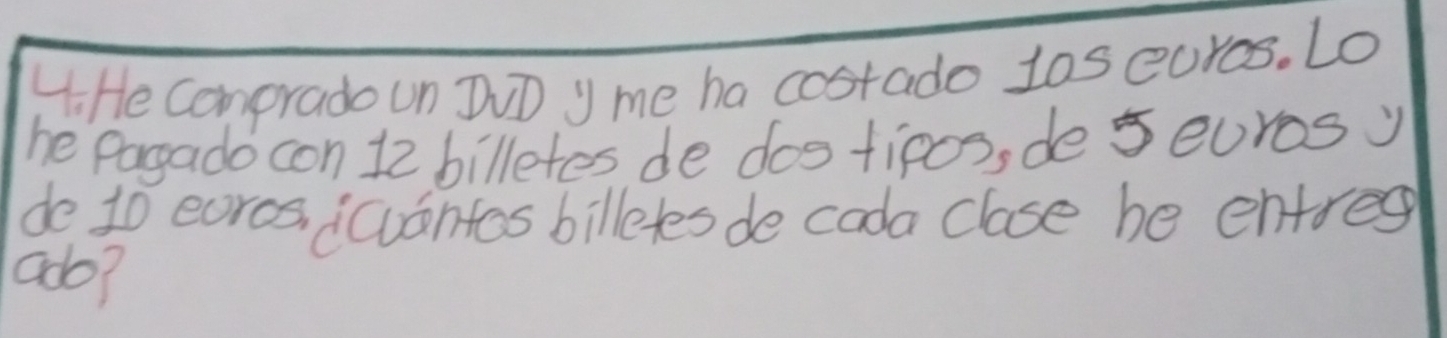 4. He comprado un DVD y me ha costado 105 euros. Lo
he pagado con 12 billetes de dos tipos, de 5 euros y
de 10 euros, ¿Cuántos billetes de cada clase he entreg
ado?